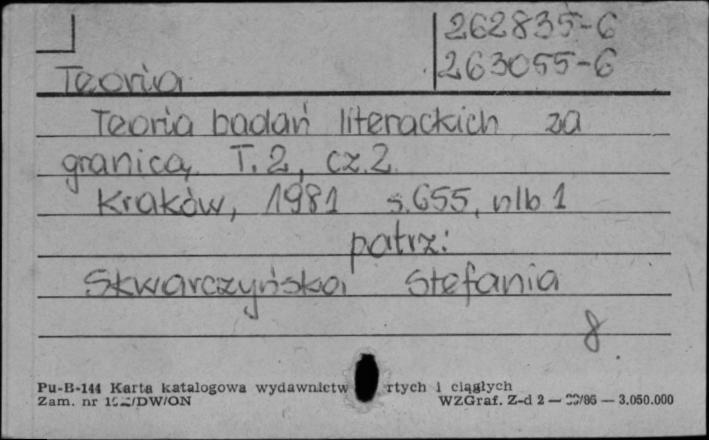 262835-6
263055-6
Teoria
Teoria badań literackich za
granicą T.2, cz.2
Kraków, 1981 s.655, nlb 1
patrz:
Skwarczyńska Stefania
8
Pu-B-144 Karta katalogowa wydawnictw rtych i ciągłych
Zam. nr /DW/ON WZGraf. Z-d 2 — /86 — 3.050.000